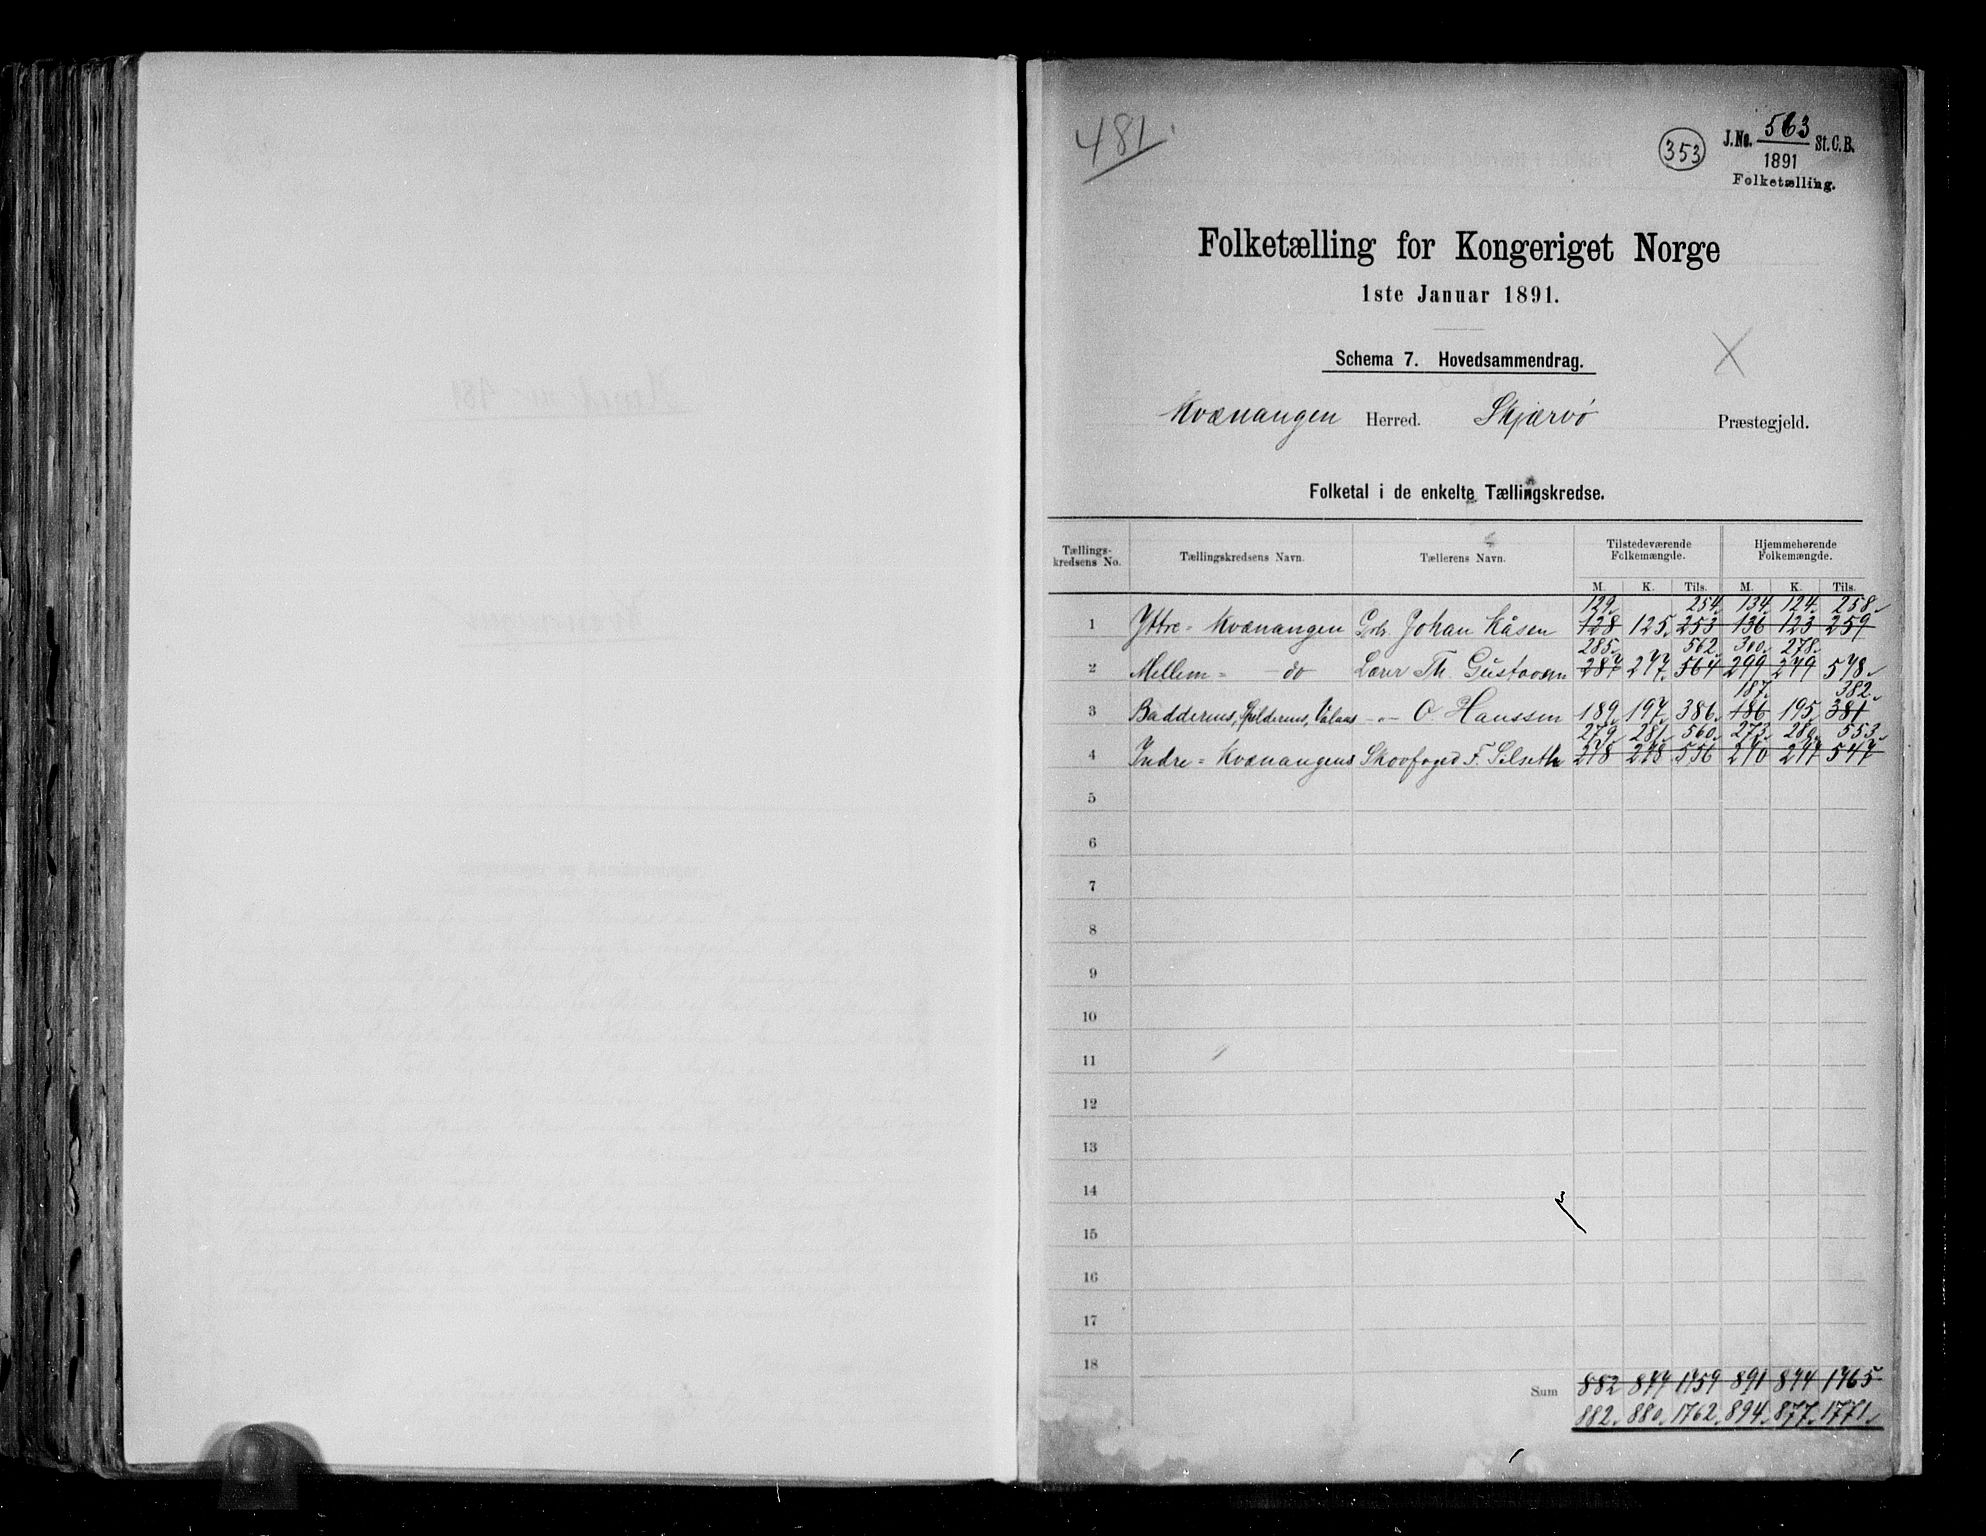 481
353
J.No. 563 St.C.B.
1891
Folketælling.
Folketælling for Kongeriget Norge
1ste Januar 1891.
Schema 7. Hovedsammendrag.
Kvænangen Herred. Skjærvø Præstegjeld.
Folketal i de enkelte Tællingskredse.
Tællings-kredsens No. Tællingskredsens Navn. Tællerens Navn. Tilstedeværende Folkemængde. Hjemmehørende Folkemængde.
M. K. Tils. M. K. Tils.
129. 254. 134. 124. 258.
1 Yttre = Kvænangen Johan Kåsen 128 125. 253 136 123 259
285. 562. 300. 278.
2 Mellem = do Lærer Th. Gustavsen 287 277. 564 299 279 578.
187. 382.
3 Badderens, Spilderens, -"- O Hanssen 189. 197. 386. 186 195. 381
279. 281. 560. 273. 280. 553.
4 Indre = Kvænangens Skovfoged F. Selseth 278 278 556 270 277 547
5
6
7
8
9
10
11
12
13
14
15
16
17
18
Sum 882 877 1759 891 874 1765
882. 880. 1762. 894. 877. 1771.